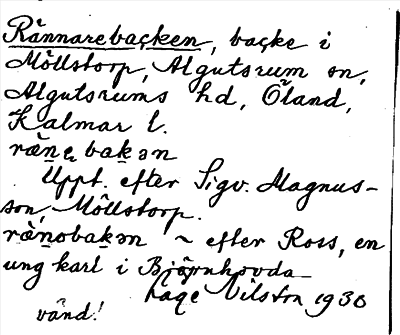 Rännarebacken, backe i
Möllstorp, Algutsrum sn,
Algutsrums hd, Öland,
Kalmar l.
ränabakən
Uppt. efter Sigv. Magnus-
son, Möllstorp.
ränobakən ~ efter Ross, en
ung karl i Björnhovda
Lage Nilsson 1930
vänd!